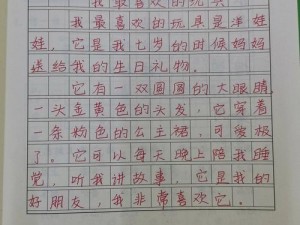 我最喜欢的玩具
我最喜欢的玩具是洋娃
娃，它是我七岁的时候妈妈
送给我的生日礼物。
它有一双圆圆的大眼睛，
一头金黄色的头发，它穿着
一条粉色的公主裙，可爱极
了。它可以每天晚上陪我睡
觉，听我讲故事，它是我的
好朋友，我非常喜欢它。